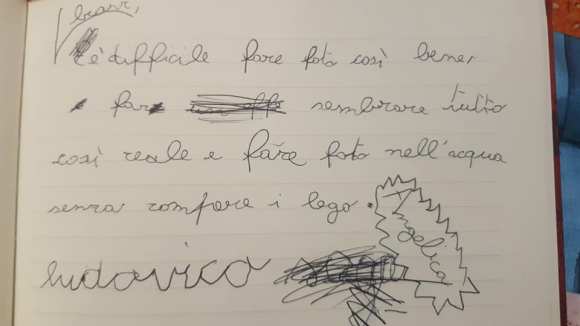 bravi,
è difficile fare foto così bene,
far sembrare tutto
così reale e fare foto nell'acqua
senza rompere i lego.
Angelica
ludovico